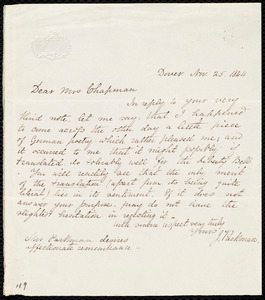 Dover Nov. 25. 1844
Dear Mrs Chapman
In reply to your very
kind note let me say, that I happened
to come across the other day a little piece
of German poetry which rather pleased me; and
it occurred to me that it might possibly, if
translated, do tolerably well for the Liberty Bell
- You will readily see that the only merit
of the translation (apart from its being quite
literal) lies in its . If it does
not answer your purpose, pray do not have the
slightest hesitation in rejecting it.
with sincere respect very truly
Yours
J. Parkman
Mrs Parkman desires
affectionate remembrance -
119